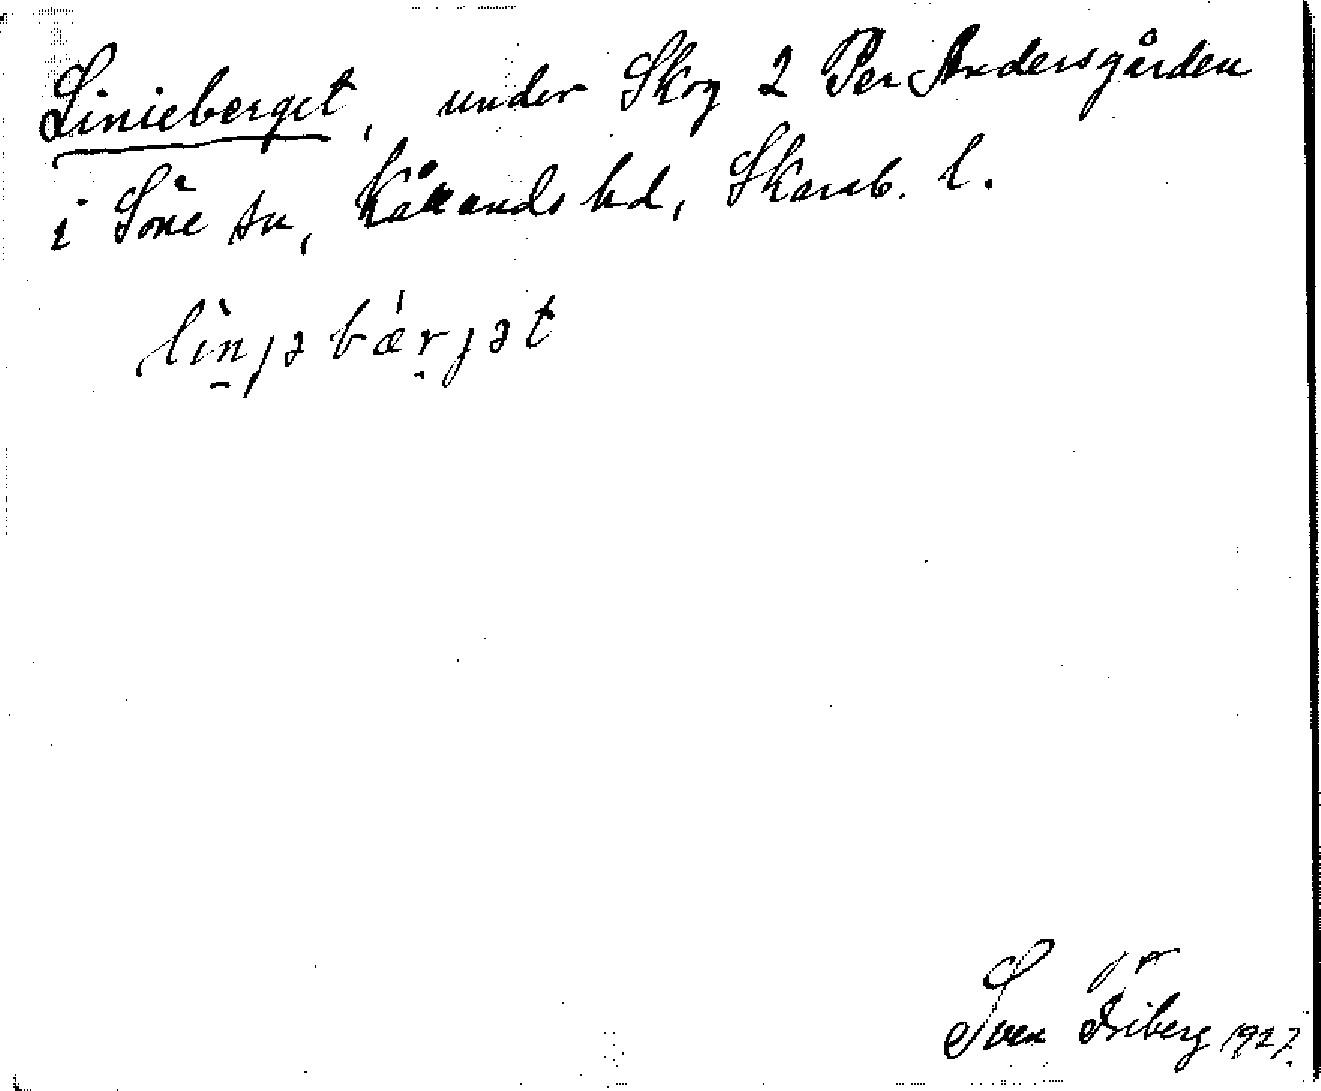 Linieberget, under Skog 2 Per Andersgården
i Söne sn, Kållands hd, Skarab. l.
lìnjəbǽrjət
Sven Friberg 1927.